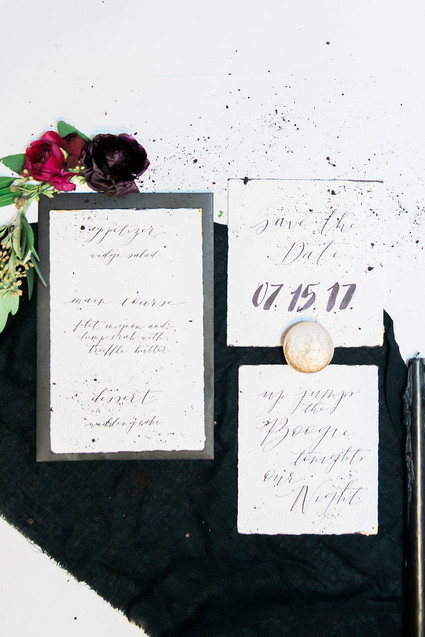 appetizer
wedge salad
main course
filet mignon and
lump crab with
truffle butter
dessert
wedding cake
save the
Date
07.15.17.
up jumps
the
Boogie
tonights
our
Night